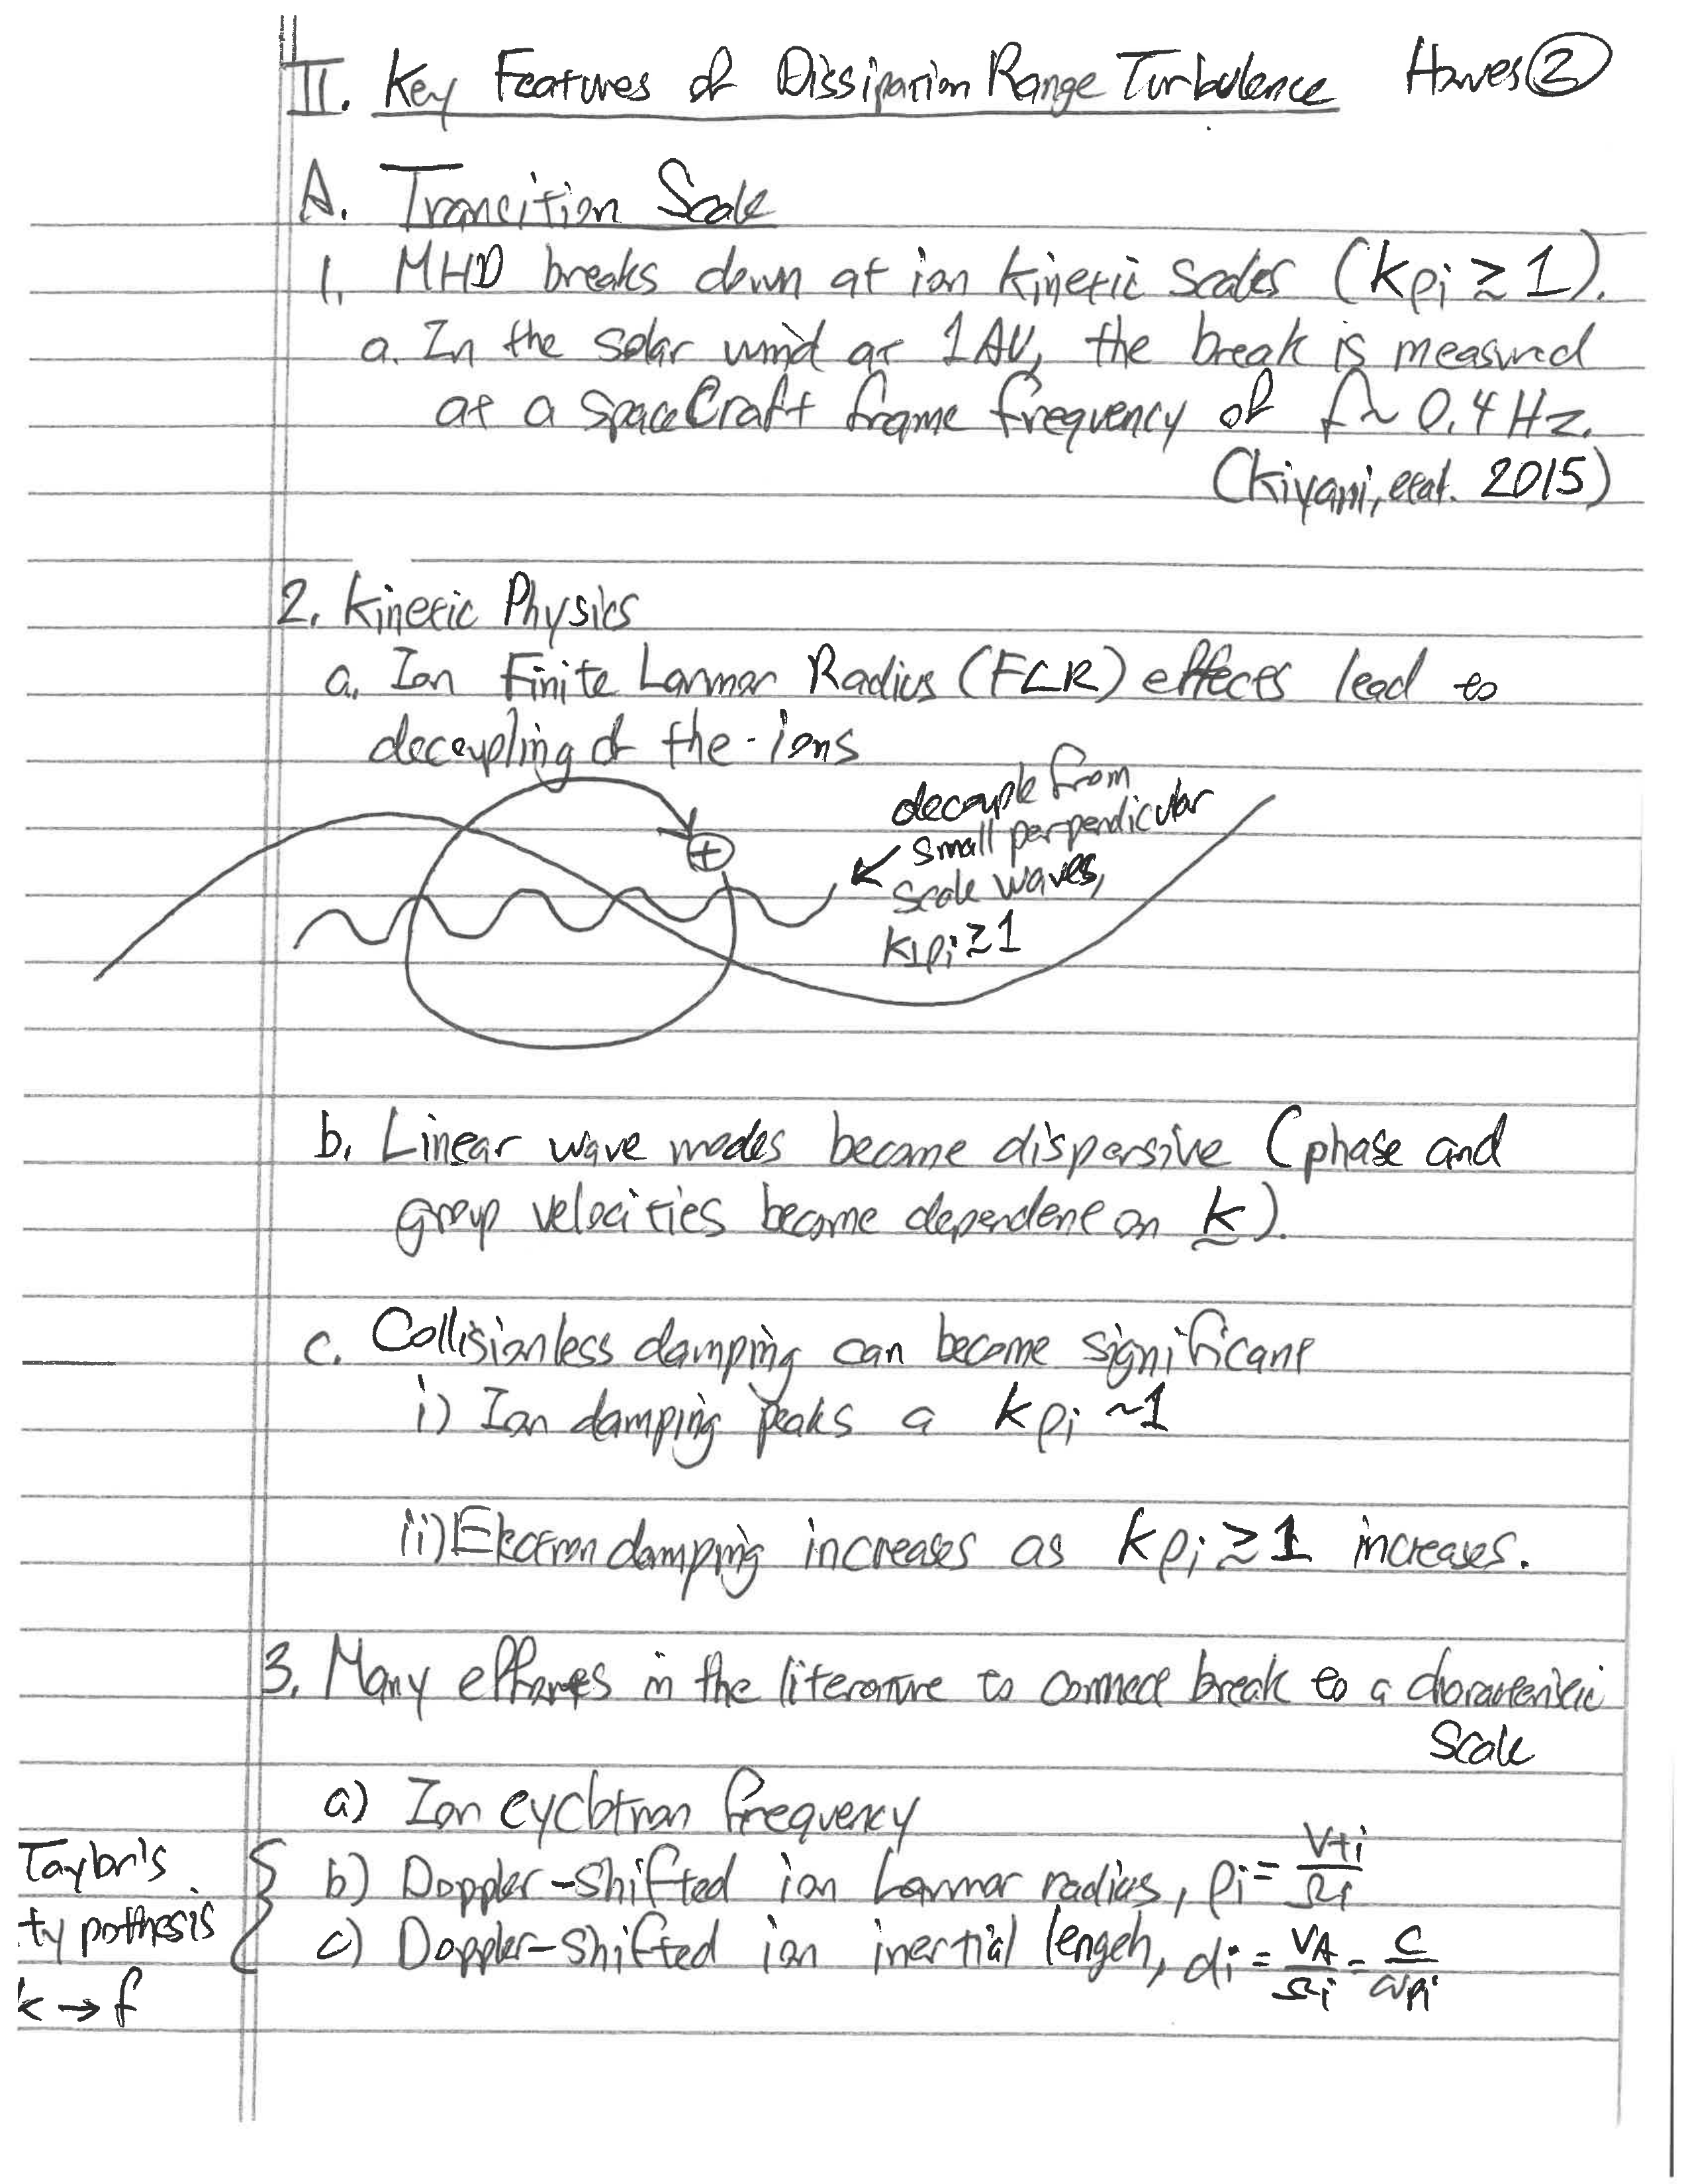 II. Key Features of Dissipation Range Turbulence Hawes ②
A. Transition Scale
1. MHD breaks down at ion kinetic scales (kρi ≳ 1).
a. In the solar wind at 1 AU, the break is measured
at a spacecraft frame frequency of f ~ 0.4 Hz.
(Kiyani, et al. 2015)
2. Kinetic Physics
a. Ion Finite Larmor Radius (FLR) effects lead to
decoupling of the ions
+
decouple from
small perpendicular
scale waves,
k⊥ρi ≳ 1
b. Linear wave modes become dispersive (phase and
group velocities become dependent on k).
c. Collisionless damping can become significant
i) Ion damping peaks a kρi ~ 1
ii) Electron damping increases as kρi ≳ 1 increases.
3. Many efforts in the literature to connect break to a characteristic
scale
a) Ion cyclotron frequency
b) Doppler-shifted ion Larmor radius, ρi = vti/Ωi
c) Doppler-shifted ion inertial length, di = vA/Ωi = c/ωpi
Taylor's
Hypothesis
k → f